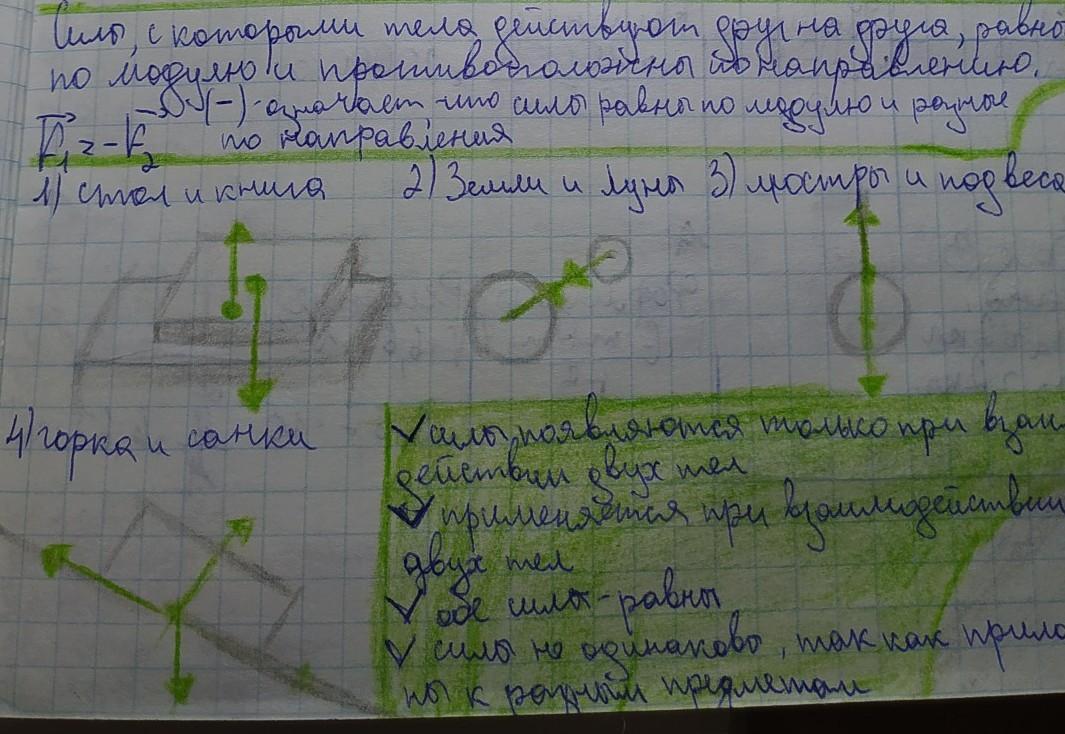 Силы, с которыми тела действуют друг на друга, равны
по модулю и противоположны по направлению.
(-)-означает что силы равны по модулю и разные
F₁=-F₂ по направления
1) стол и книга 2) Земли и Луны 3) люстры и подвеса
4) горка и санки
✓ силы появляются только при взаи-
действии двух тел
✓ применяется при взаимодействии
двух тел
✓ обе силы-равны
✓ силы не одинаковы, так как прило
ны к разным предметам